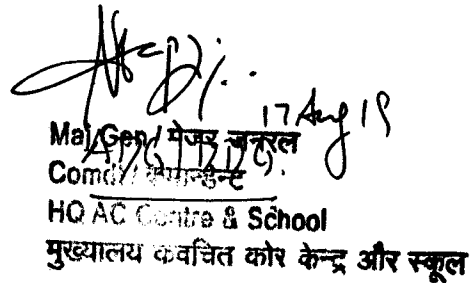 17 Aug 19
Maj Gen / मेजर जनरल
Comdt / कमान्डेन्ट
HQ AC Centre & School
मुख्यालय कवचित कोर केन्द्र और स्कूल